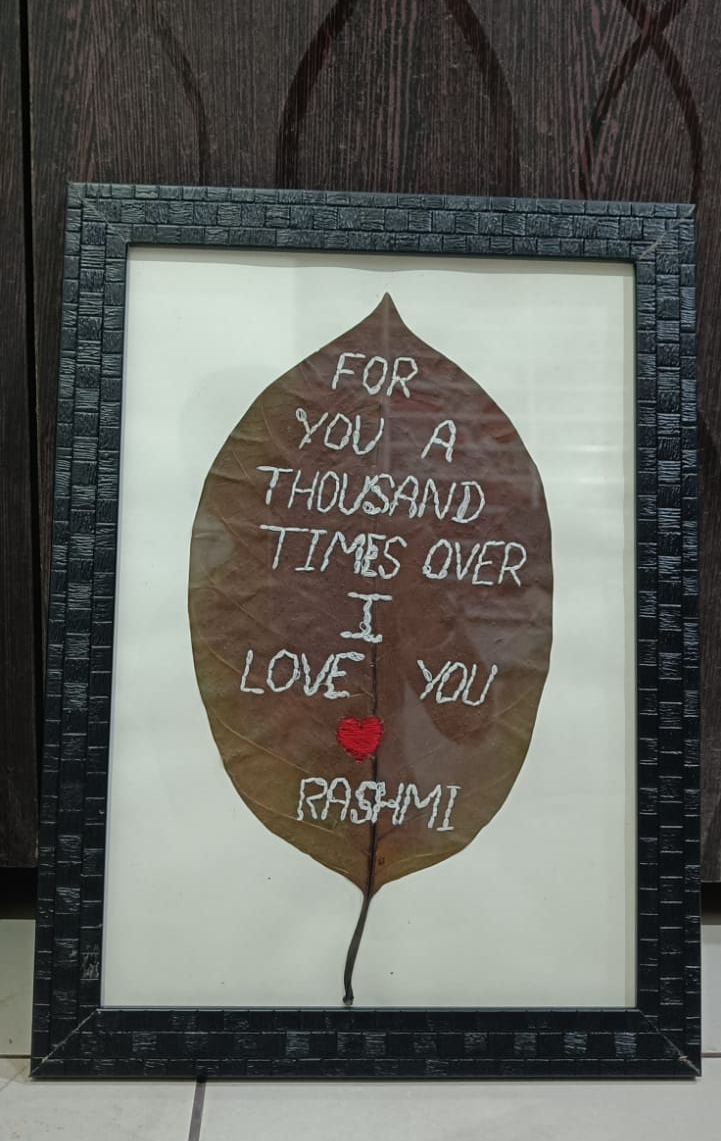 FOR
YOU A
THOUSAND
TIMES OVER
I
LOVE YOU
RASHMI